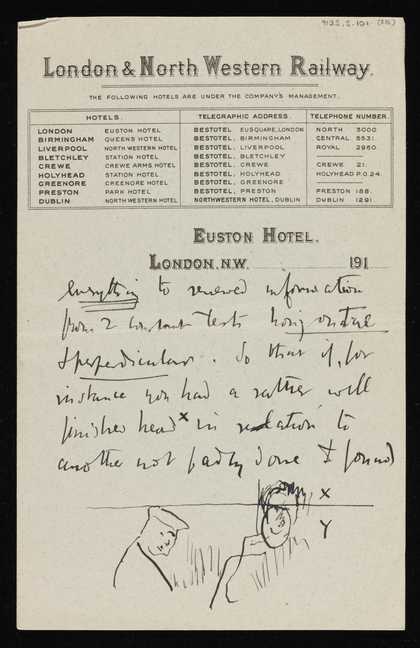 London & North Western Railway.
THE FOLLOWING HOTELS ARE UNDER THE COMPANY'S MANAGEMENT.
HOTELS. TELEGRAPHIC ADDRESS. TELEPHONE NUMBER.
LONDON EUSTON HOTEL BESTOTEL, EUSQUARE, LONDON NORTH 3000
BIRMINGHAM QUEENS HOTEL BESTOTEL, BIRMINGHAM CENTRAL 5531.
LIVERPOOL NORTH WESTERN HOTEL BESTOTEL, LIVERPOOL ROYAL 2960.
BLETCHLEY STATION HOTEL BESTOTEL, BLETCHLEY
CREWE CREWE ARMS HOTEL BESTOTEL, CREWE CREWE 21.
HOLYHEAD STATION HOTEL BESTOTEL, HOLYHEAD HOLYHEAD P.O.24.
GREENORE GREENORE HOTEL BESTOTEL, GREENORE
PRESTON PARK HOTEL BESTOTEL, PRESTON PRESTON 188.
DUBLIN NORTH WESTERN HOTEL NORTHWESTERN HOTEL, DUBLIN DUBLIN 1291
EUSTON HOTEL.
LONDON. N.W. 191
everything to renewed information
from 2 constant tests
& perpendicular. So that if, for
instance you had a rather well
finished head x in relation to
another not badly done & found
X
Y